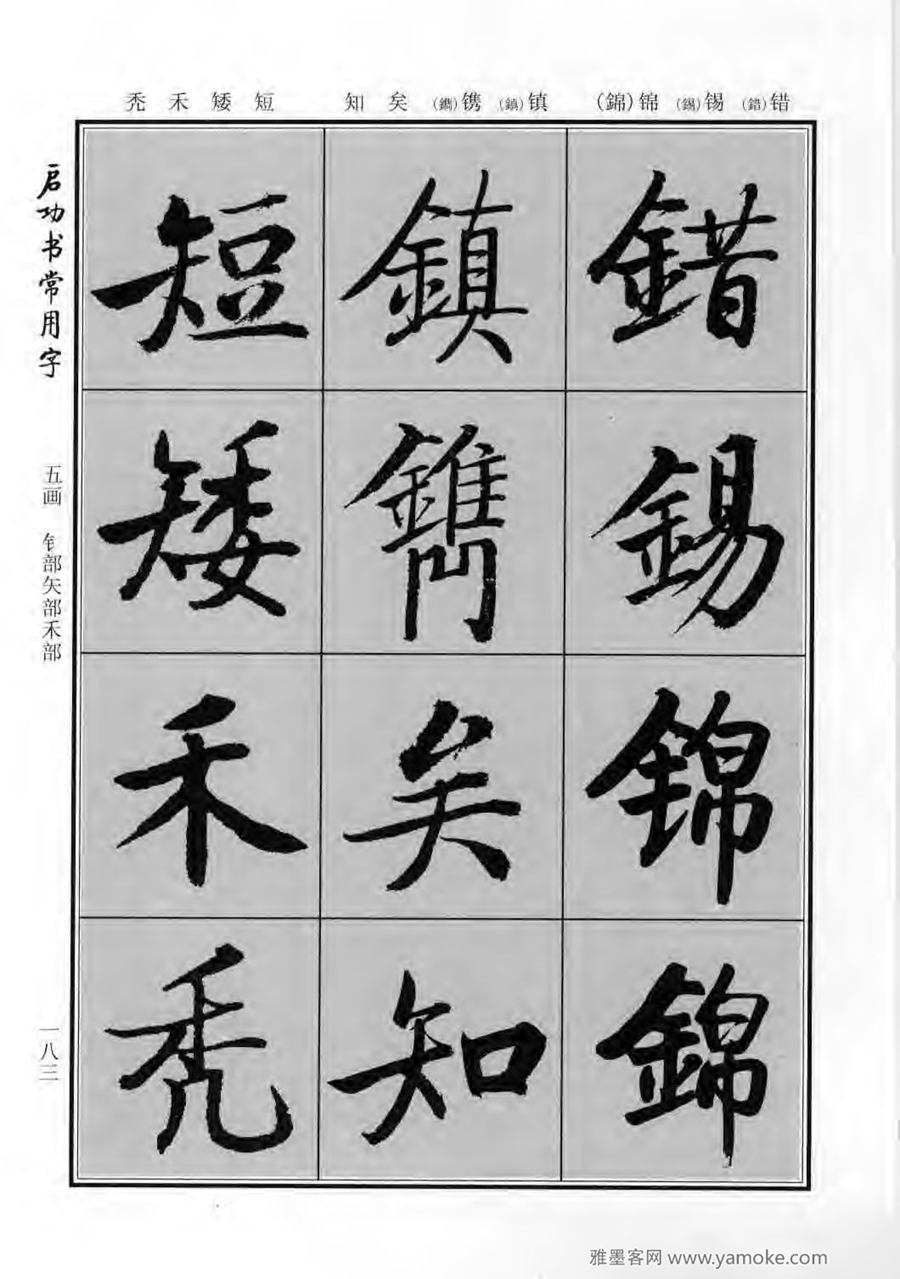 错(錯) 锡(錫) 锦(錦) 镇(鎮) 镌(鐫) 矣 知 短 矮 禾 秃
錯錫锦錦
鎮鐫矣知
短矮禾秃
启功书常用字
五画 钅部矢部禾部
一八三
雅墨客网 www.yamoke.com